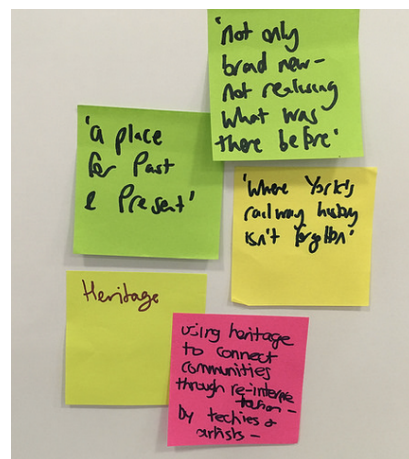 'not only
brand new –
not realising
what was
there before'
'a place
for Past
& Present'
'Where York's
railway history
isn't forgotten'
Heritage
using heritage
to connect
communities
through re-interpre
tation –
by techies &
artists –